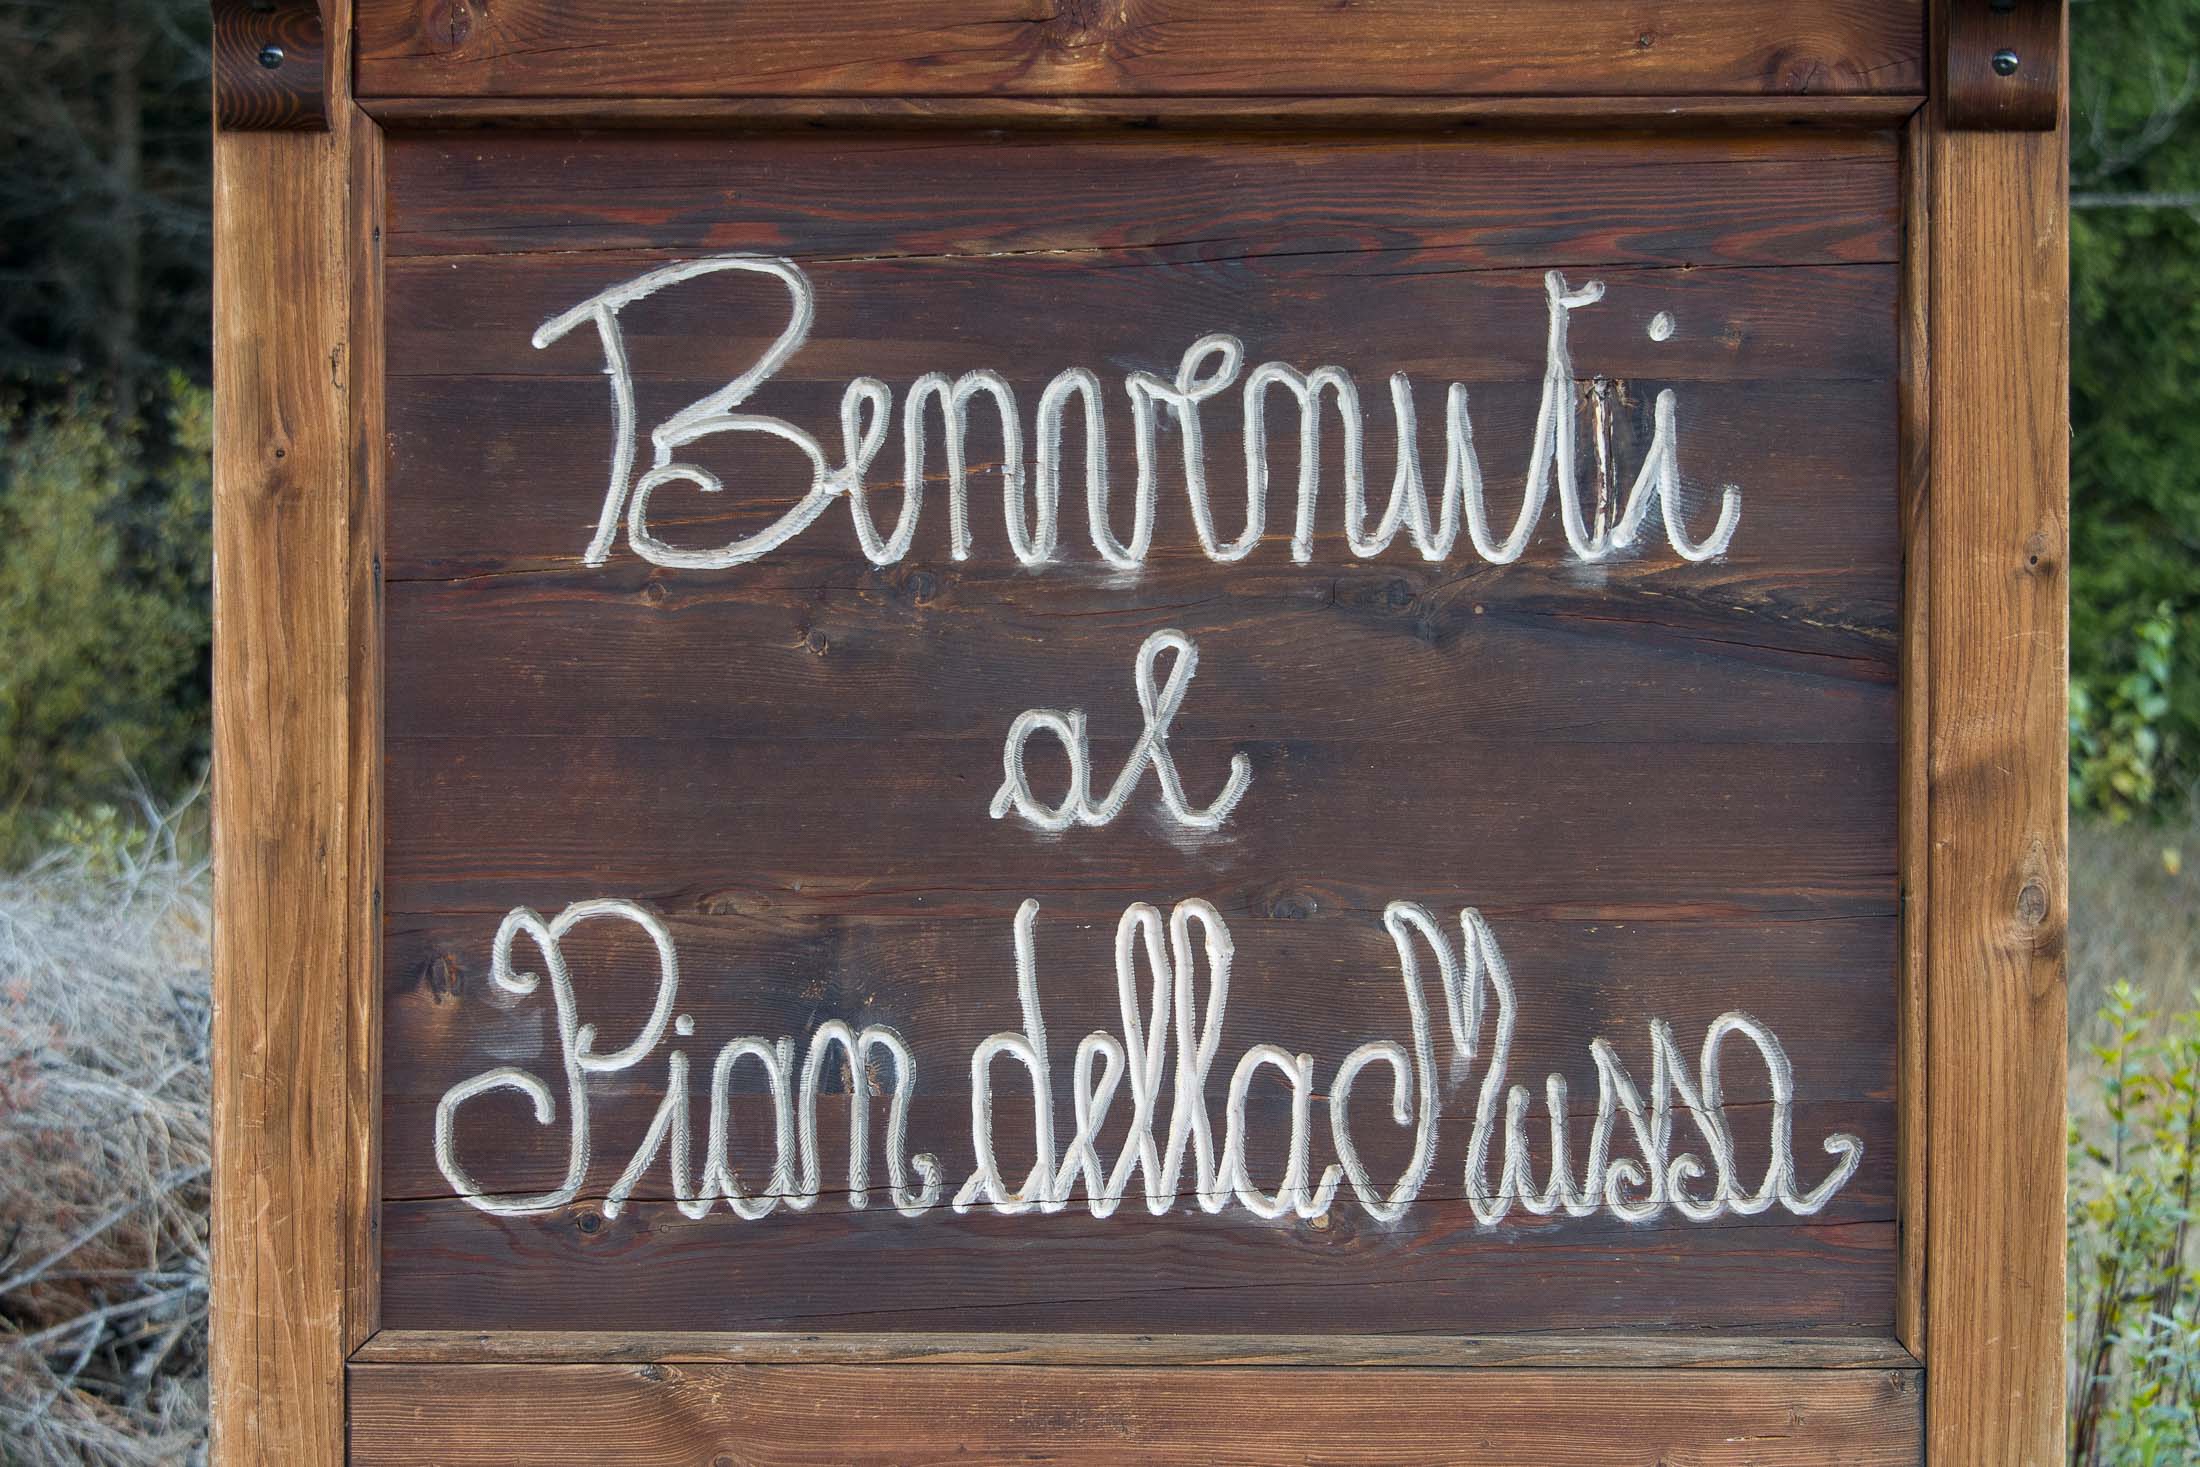 Benvenuti
al
Pian della Mussa